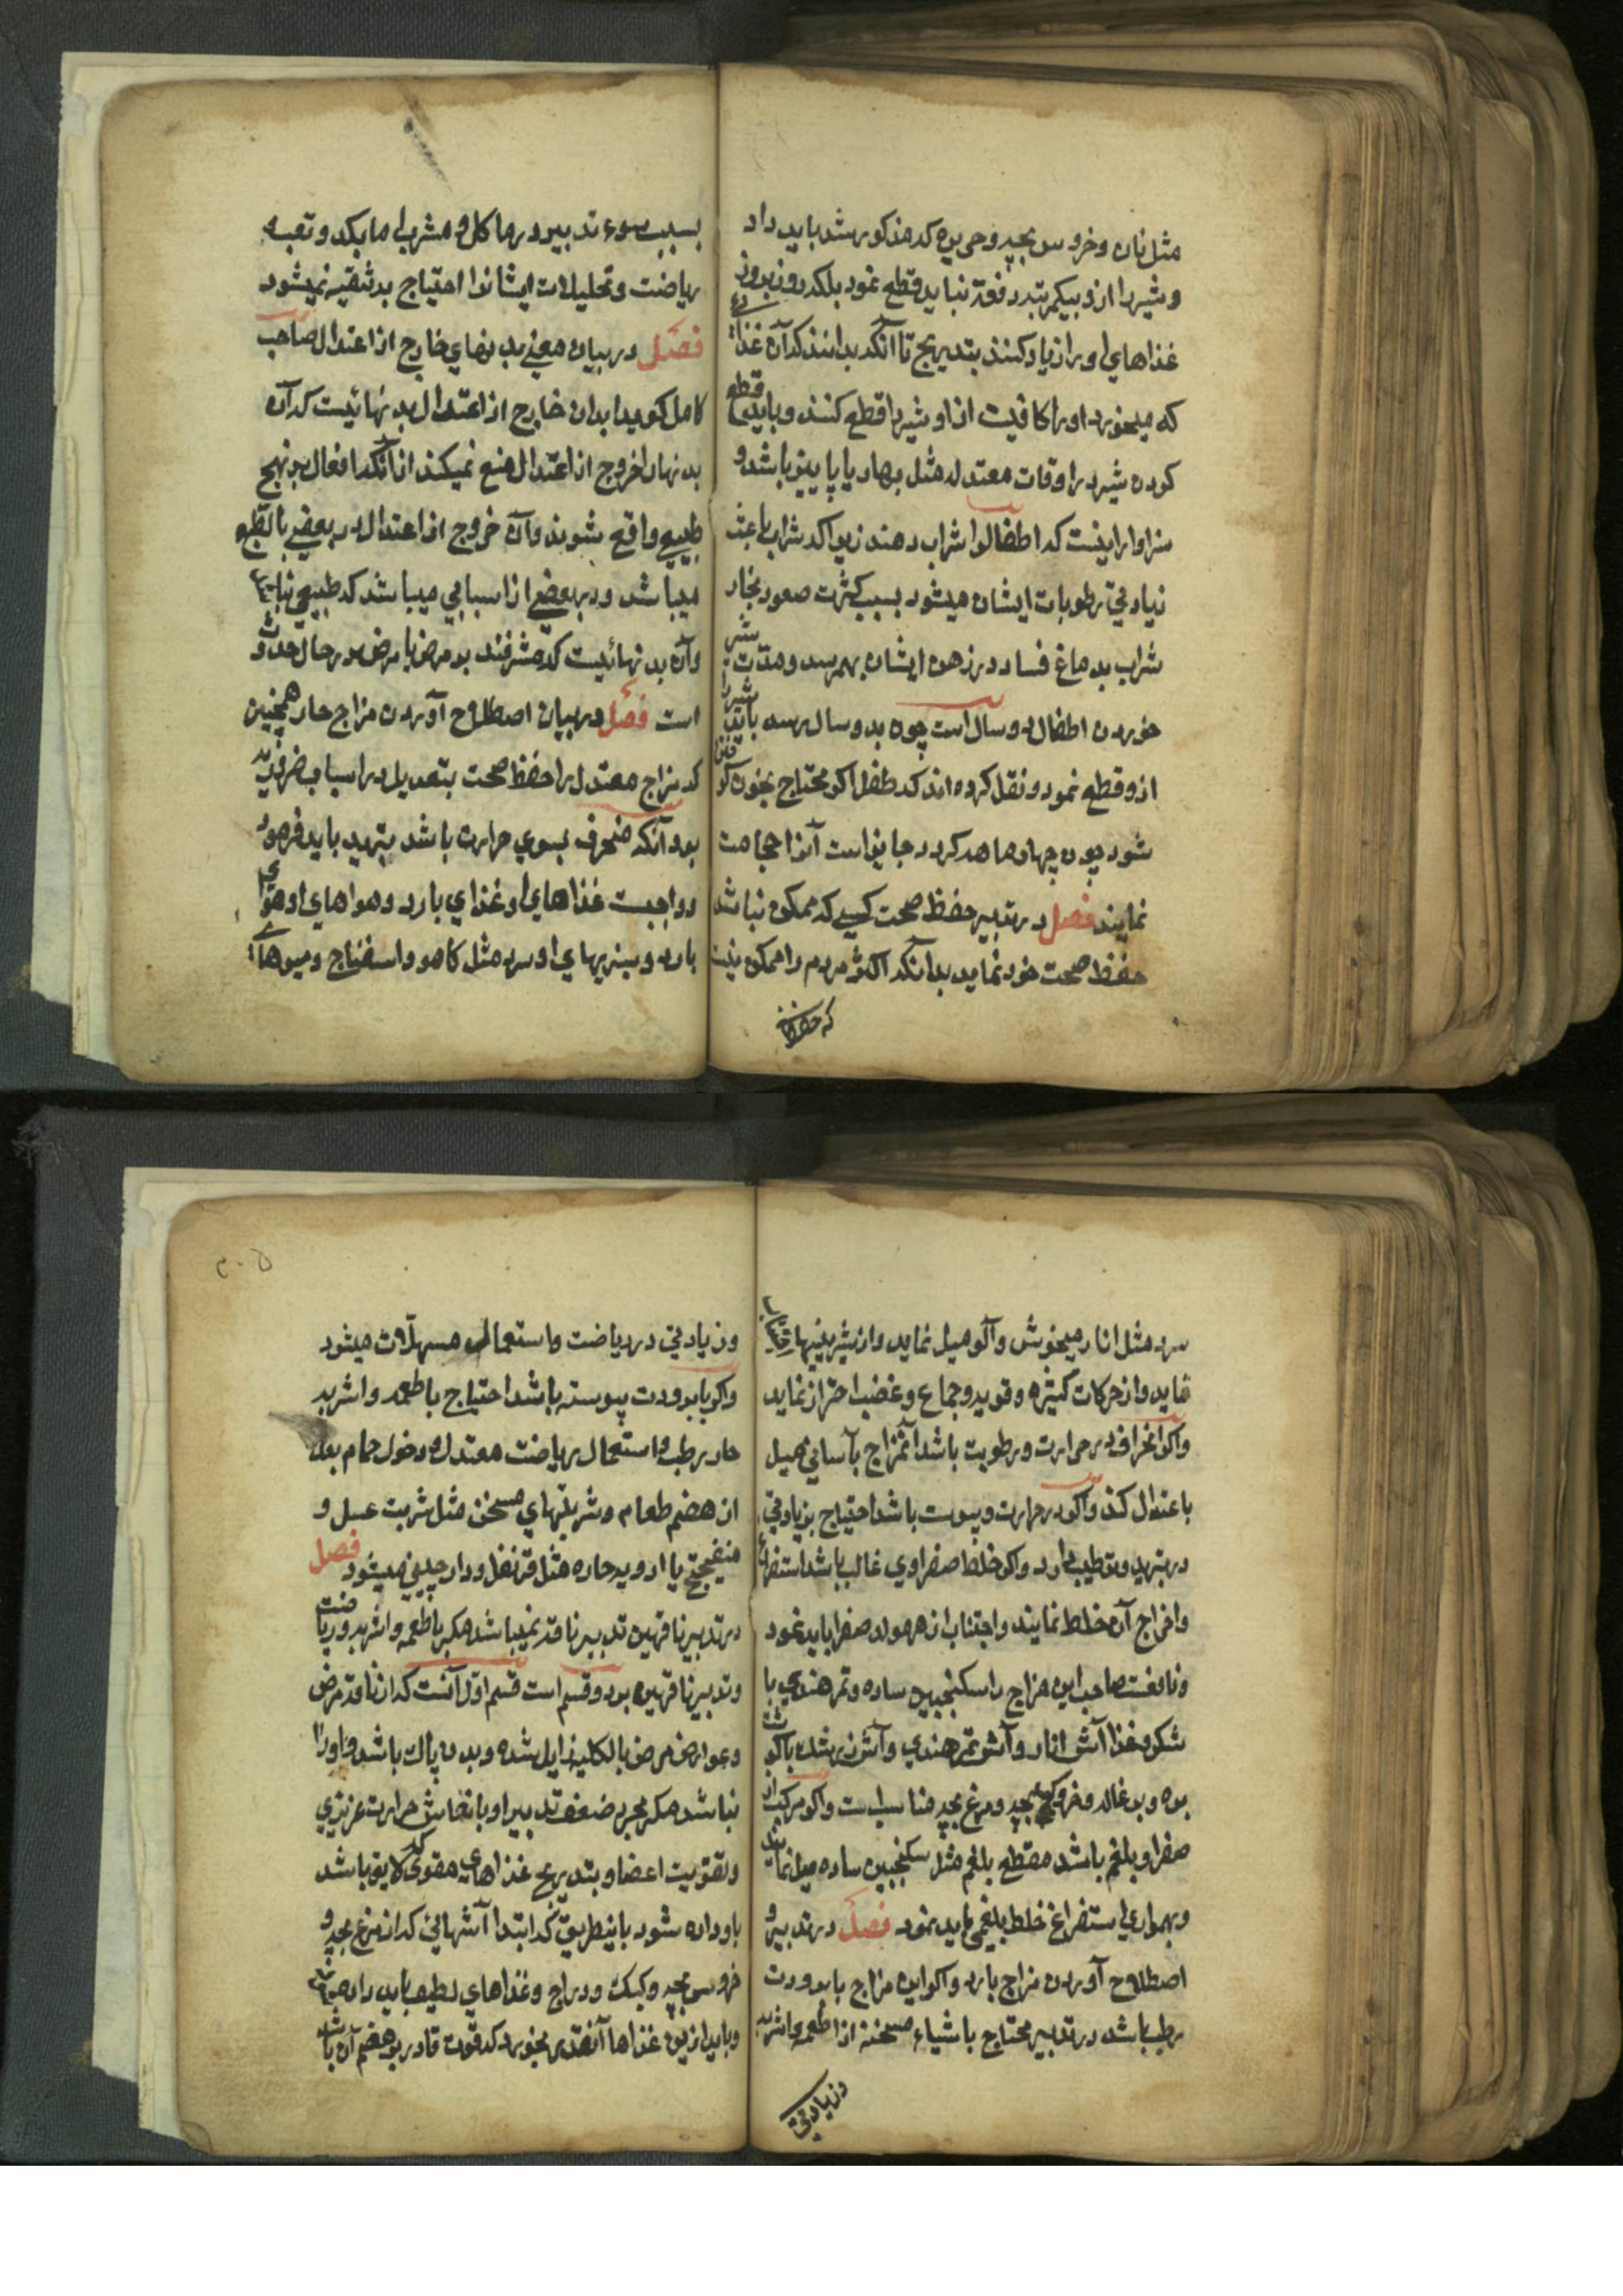 مثل نان و خروس بچه و حریره که مذکور شد باید داد
و شیر را از و بیکمرتبه دفعة نباید قطع نمود بلکه روز بروز
غذاهای او را زیاد کنند بتدریج تا آنکه بدانند که آن غذائی
که میخورد او را کافیست از او شیر را قطع کنند و باید قطع
کردن شیر در اوقات معتدله مثل بهار یا پاییز باشد و
سزاوار نیست که اطفال را شراب دهند زیرا که شراب باعث
زیادتی رطوبات ایشان میشود بسبب کثرت صعود بخار
شراب بدماغ فساد در ذهن ایشان بهمرسد و مدّت شیر
خوردن اطفال دو سال است چون بدو سال رسد باید شیر را
ازو قطع نمود و نقل کرده اند که طفل اکر محتاج بخون کرفتن
شود چون چهار ماهه کردد جایز است آنرا حجامت
نمایند فصل در تدبیر حفظ صحت کسی که ممکن نباشد
حفظ صحت خود نماید بدانکه اکثر مردم را ممکن نیست
که حفظ
بسبب سوء تدبیر در ماکل و مشرب اما بکد و تعب
ریاضت و تحلیلات ایشانرا احتیاج بتنقیه نمیشود
فصل در بیان معنی بدنهای خارج از اعتدال صاحب
کامل کوید ابدان خارج از اعتدال بدنهائیست که آن
بدنها را خروج از اعتدال منع نمیکند از آنکه افعال بر نهج
طبیعی واقع شوند و آن خروج از اعتدال در بعضی بالطبع
میباشد و در بعضی از اسبابی میباشد که طبیعی نباشد
و آن بدنهائیست که مشرفند بر مرض یا مرض در حال حدوث
است فصل در بیان اصطلاح آوردن مزاج حار همچنین
که مزاج معتدل را حفظ صحت بتعدیل در اسباب ضروریه
بود آنکه منحرف بسوی حرارت باشد بتبرید باید فرمود
و واجبست غذاهای او غذای بارد و هواهای او هوای
بارد و سبزیهای او سرد مثل کاهو و اسفناج و میوهای
سرد مثل انار میخوش و آلو میل نماید و از شیرینیها اجتناب
نماید و از حرکات کثیره و قویه و جماع و غضب احتراز نماید
و اکر انحراف در حرارت و رطوبت باشد آنمزاج بآسانی میل
باعتدال کند و اکر در حرارت و یبوست باشد احتیاج بزیادتی
در تبرید و ترطیب دارد و اکر خلط صفراوی غالب باشد استفراغ
و اخراج آن خلط نمایند و اجتناب از هر مولد صفرا باید نمود
و نافعست صاحب این مزاج را سکنجبین ساده و تمر هندی با
شکر و غذا آش انار و آش تمر هندی و آش زرشک با کوشت
بره و بزغاله و خروس بچه و مرغ بچه مناسب است و اکر مرکب از
صفرا و بلغم باشد مقطع بلغم مثل سکنجبین ساده میل نمایند
و بهمواری استفراغ خلط بلغمی باید نمود فصل در تدبیر و
اصطلاح آوردن مزاج بارد و اکر این مزاج با برودت
رطب باشد در تدبیر محتاج باشیاء مسخنه از اطعمه و اشربه
و زیادتی
و زیادتی در ریاضت و استعمال مسهلات میشود
و اکر با برودت یبوسته باشد احتیاج باطعمه و اشربه
حار رطب و استعمال ریاضت معتدل و دخول حمام بعد
از هضم طعام و شربتهای مسخن مثل شربت عسل و
با ادویه حاره مثل قرنفل و دارچینی میشود فصل
در تدبیر ناقهین تدبیر ناقه نمیباشد مکر باطعمه و اشربه و ریاضت
و تدبیر ناقهین بر دو قسم است قسم اوّل آنست که از ناقه مرض
و عوارض مرض بالکلیه زایل شده و بدن پاک باشد و او را
نباشد مکر مجرد ضعف تدبیر او بانعاش حرارت غریزی
و تقویت اعضا و بتدریج غذاهای مقوی که لایق باشد
باو داده شود باینطریق که ابتدا آشهائی که از مرغ بچه و
خروس بچه و کبک و دراج و غذاهای لطیف باید داد
و باید ازین غذاها آنقدر بخورد که قوت قادر بر هضم آن باشد